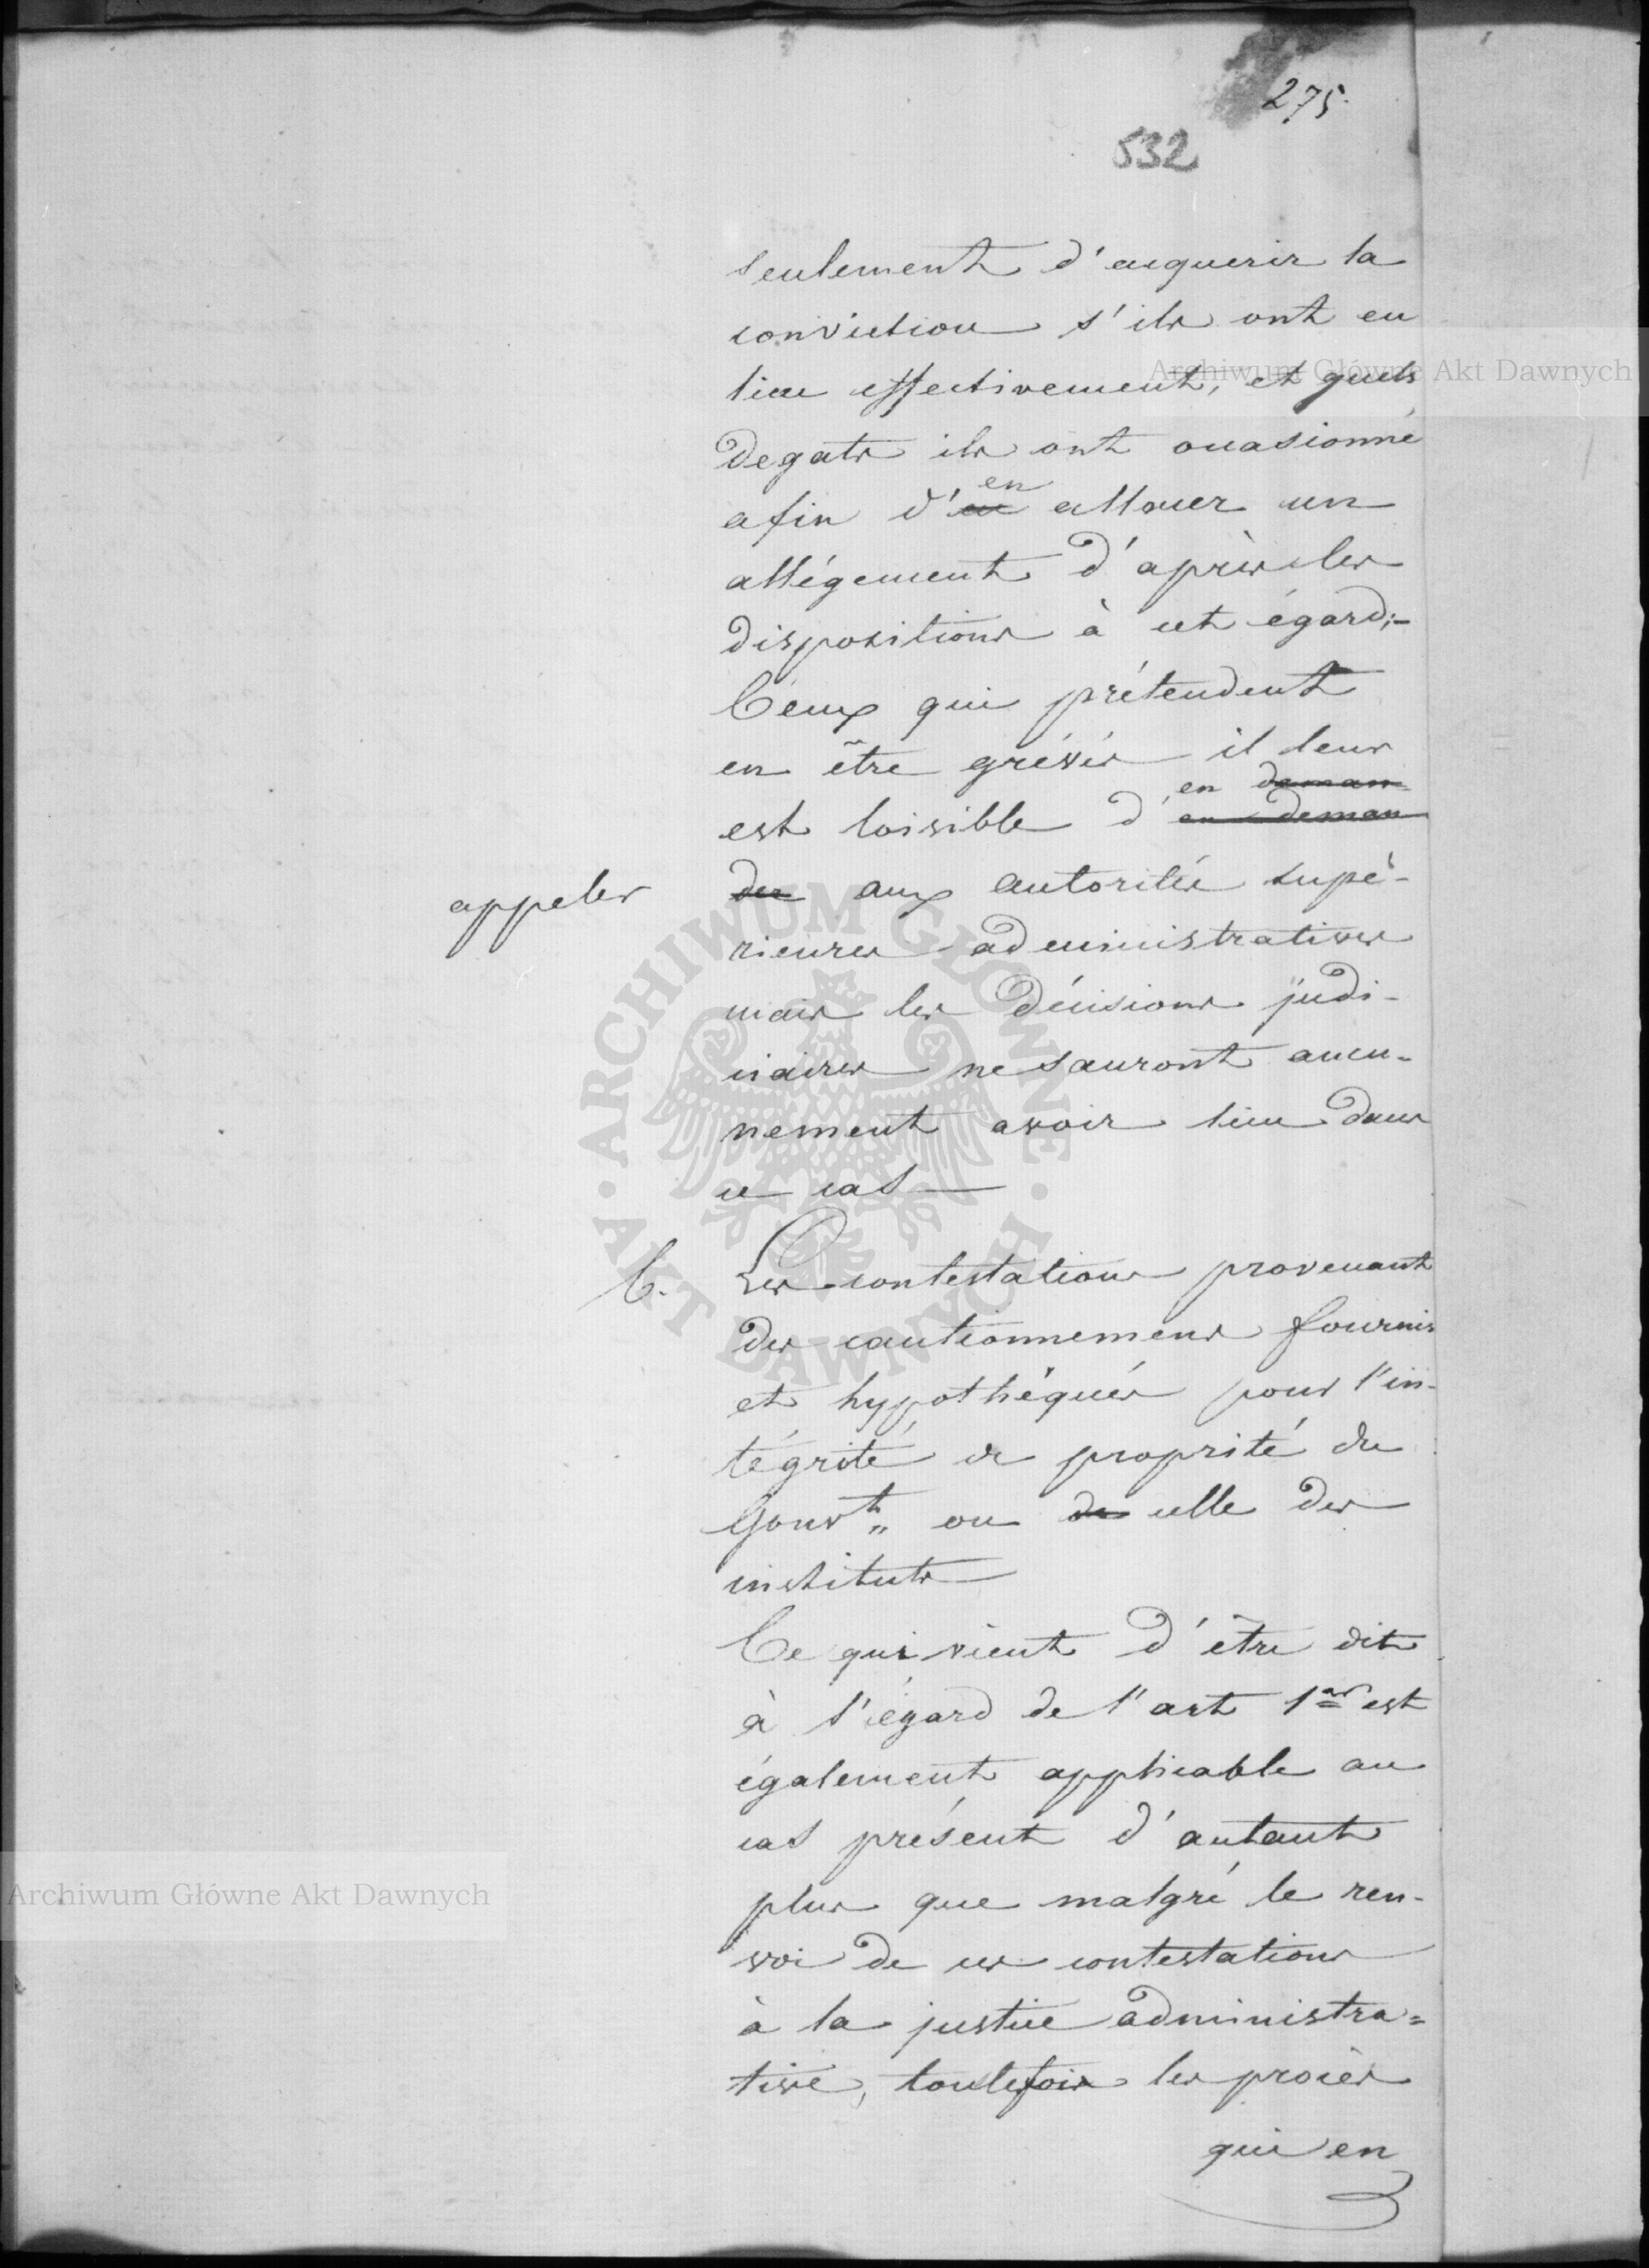 275.
532
seulement d'acquerir la
conviction s'ils ont eu
lieu effectivement, et quels
degats ils ont occasionné
afin d'en allouer un
allégement d'après les
dispositions à cet égard;-
Ceux qui prétendent
en être grévés il leur
en deman-
est loisible d'en deman
appeler der aux autorités supé-
rieures administratives
mais les décisions judi-
ciaires ne sauront aucu-
nement avoir lieu dans
ce cas
C. Les contestations provenant
des cautionnemens fournis
et hypothéqués pour l'in-
tégrité de proprité du
Gouvt„ ou de celle des
instituts
Ce qui vient d'être dit
à l'égard de l'art 1er est
également applicable au
cas présent d'autant
plus que malgré le ren-
voi de ces contestations
à la justice administra=
tive, toutefois les procès
qui en
Archiwum Główne Akt Dawnych
Archiwum Główne Akt Dawnych
ARCHIWUM GŁÓWNE · AKT DAWNYCH ·